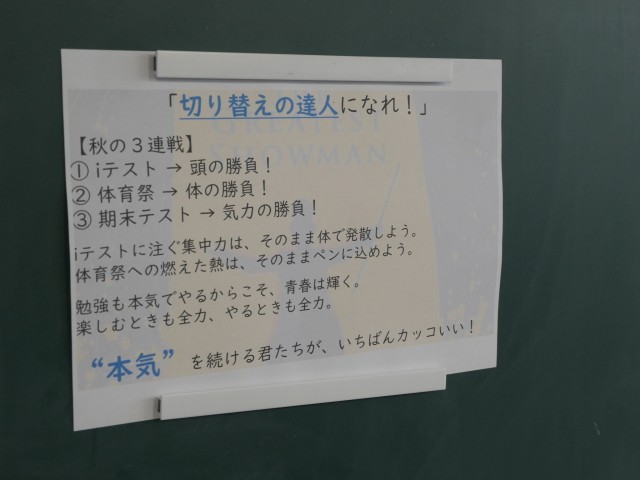 「切り替えの達人になれ！」
GREATEST
SHOWMAN
【秋の３連戦】
① iテスト → 頭の勝負！
② 体育祭 → 体の勝負！
③ 期末テスト → 気力の勝負！
iテストに注ぐ集中力は、そのまま体で発散しよう。
体育祭への燃えた熱は、そのままペンに込めよう。
勉強も本気でやるからこそ、青春は輝く。
楽しむときも全力、やるときも全力。
“本気” を続ける君たちが、いちばんカッコいい！